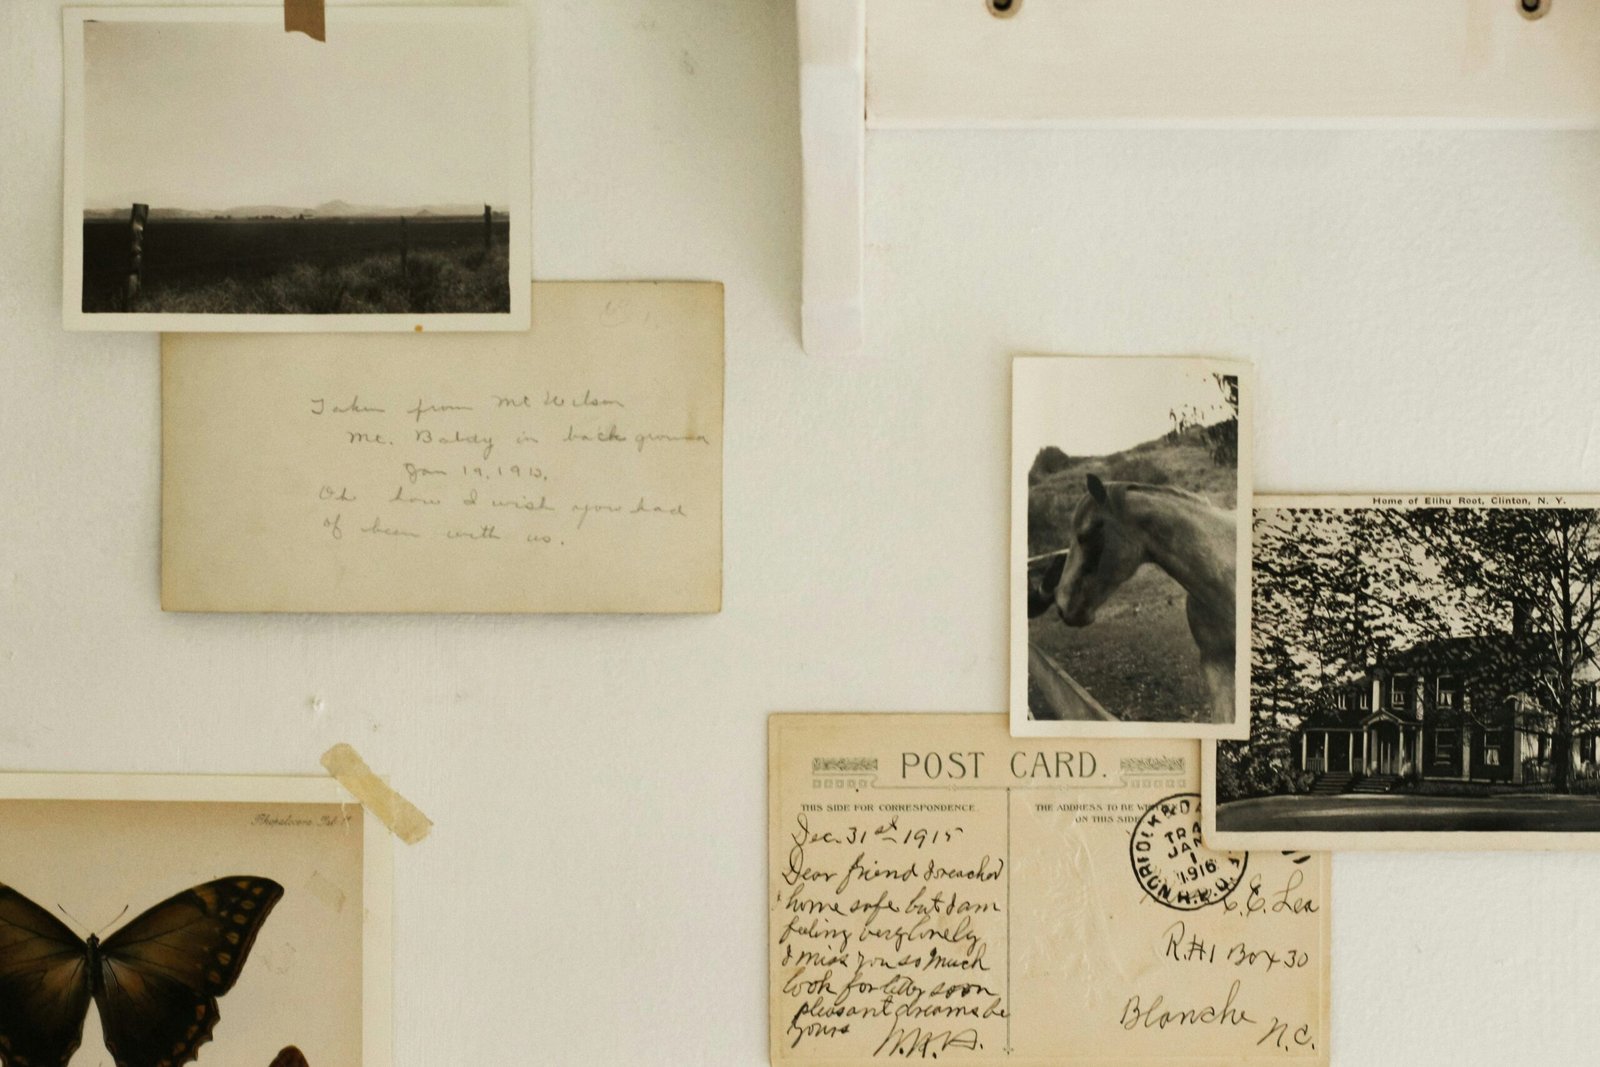 Taken from Mt Wilson
Mt. Baldy in back ground
Jan 19, 1913.
Oh how I wish you had
of been with us.
Home of Elihu Root, Clinton, N. Y.
POST CARD.
THIS SIDE FOR CORRESPONDENCE
THE ADDRESS TO BE
ON THIS SIDE
Dec. 31st 1915
Dear friend I reached
home safe but I am
feeling very lonely
I miss you so much
look for letter soon
pleasant dreams be
yours
JAN
1
1916
R.P.O.
C.E. Lea
R.#1 Box 30
Blanche
N.C.